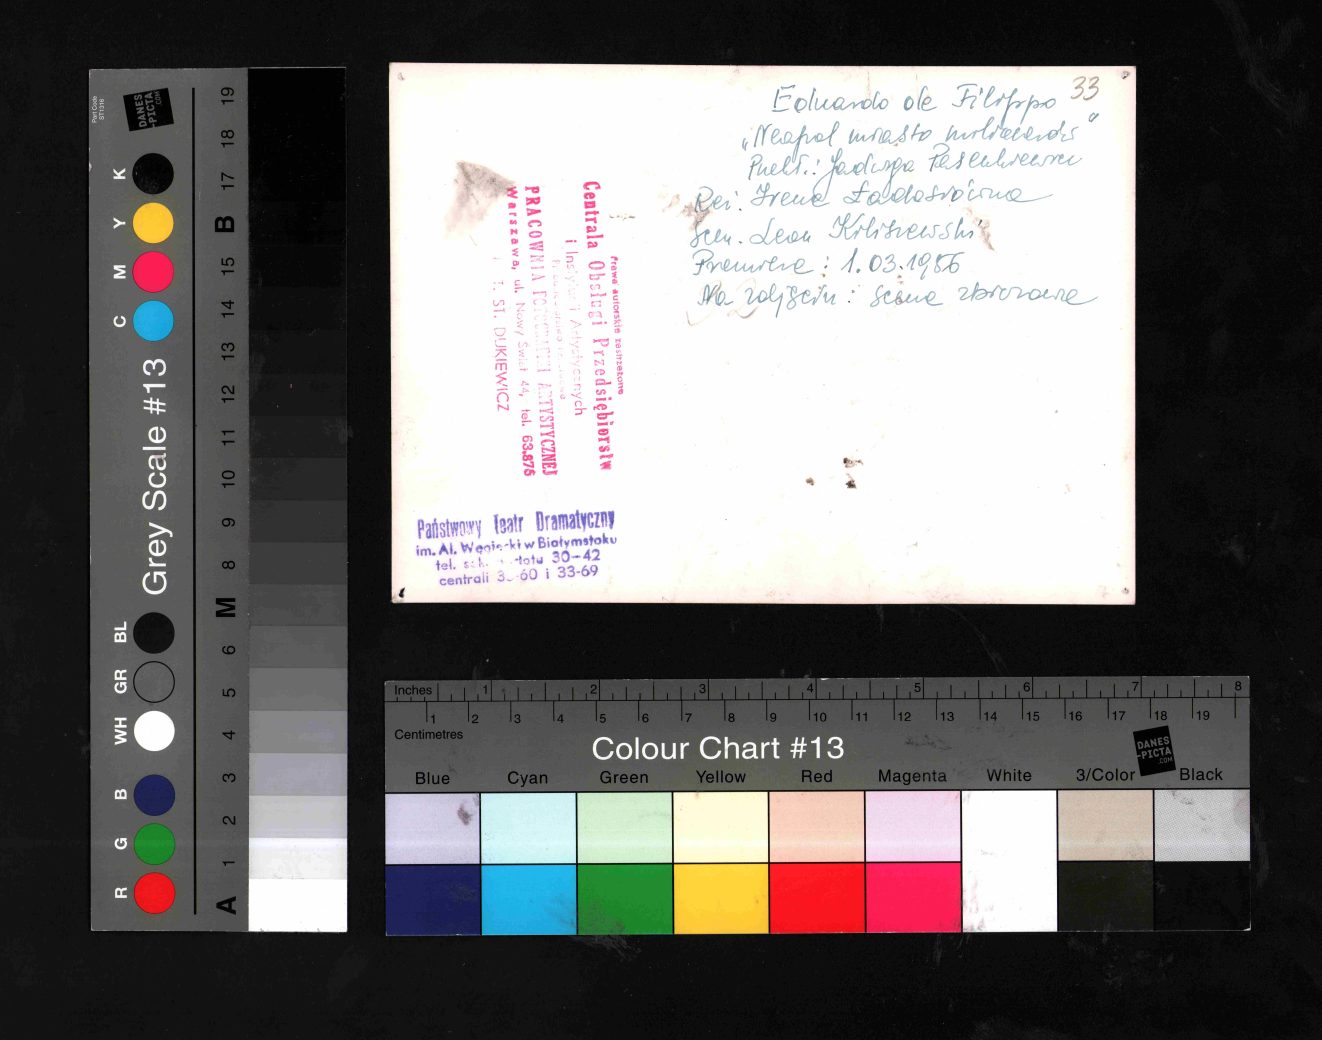 33
Eduardo de Filippo
„Neapol miasto milionerów"
Przekł.: Jadwiga Pasenkiewicz
Reż. Irena Ładosiówna
Scen. Leon
Premiera : 1.03.1956
Na zdjęciu : scena zbiorowa
Prawa autorskie zastrzeżone
Centrala Obsługi Przedsiębiorstw
i Instytucji Artystycznych
PRACOWNIA FOTOGRAFII ARTYSTYCZNEJ
Warszawa, ul. Nowy Świat 44, tel. 63.875
ST. DUKIEWICZ
Państwowy Teatr Dramatyczny
im. Al. Węgierki w Białymstoku
tel. 30-42
centrali 60 i 33-69
Part Code
ST1316
DANES
-PICTA
.COM
Grey Scale #13
R G B WH GR BL C M Y K
A 1 2 3 4 5 6 M 8 9 10 11 12 13 14 15 B 17 18 19
Inches 1 2 3 4 5 6 7 8
1 2 3 4 5 6 7 8 9 10 11 12 13 14 15 16 17 18 19
Centimetres
Colour Chart #13
DANES
-PICTA
.COM
Blue Cyan Green Yellow Red Magenta White 3/Color Black